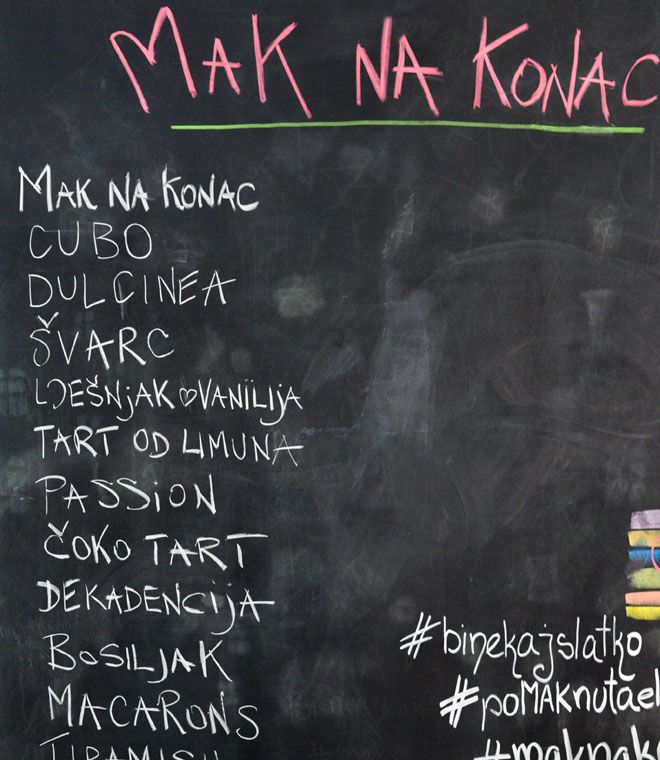 MAK NA KONAC
MAK NA KONAC
CUBO
DULCINEA
ŠVARC
LJEŠNJAK ♡ VANILIJA
TART OD LIMUNA
PASSION
ČOKO TART
DEKADENCIJA
BOSILJAK
MACARONS
TIRAMISU
#binekajslatko
#poMAKnutael
#maknako